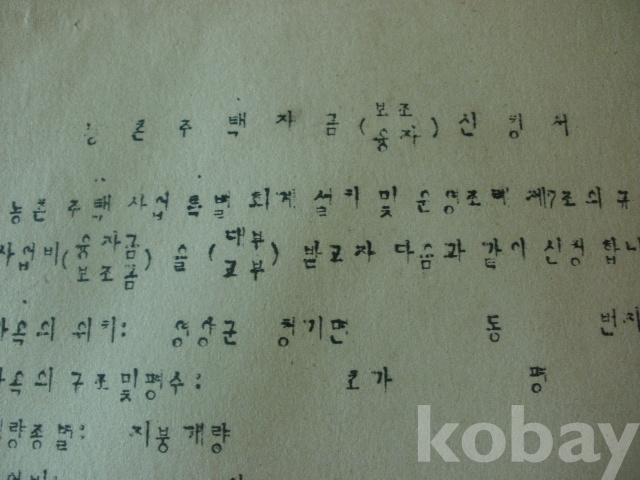 농촌주택자금(보조 융자)신청서
농촌주택사업특별회계설치및운영조례 제7조의규
사업비(융자금 보조금)을(대부 교부)받고자 다음과 같이 신청합니
가옥의위치: 영양군 청기면 동 번지
가옥의구조및평수: 초가 평
개량종별: 지붕개량
kobay